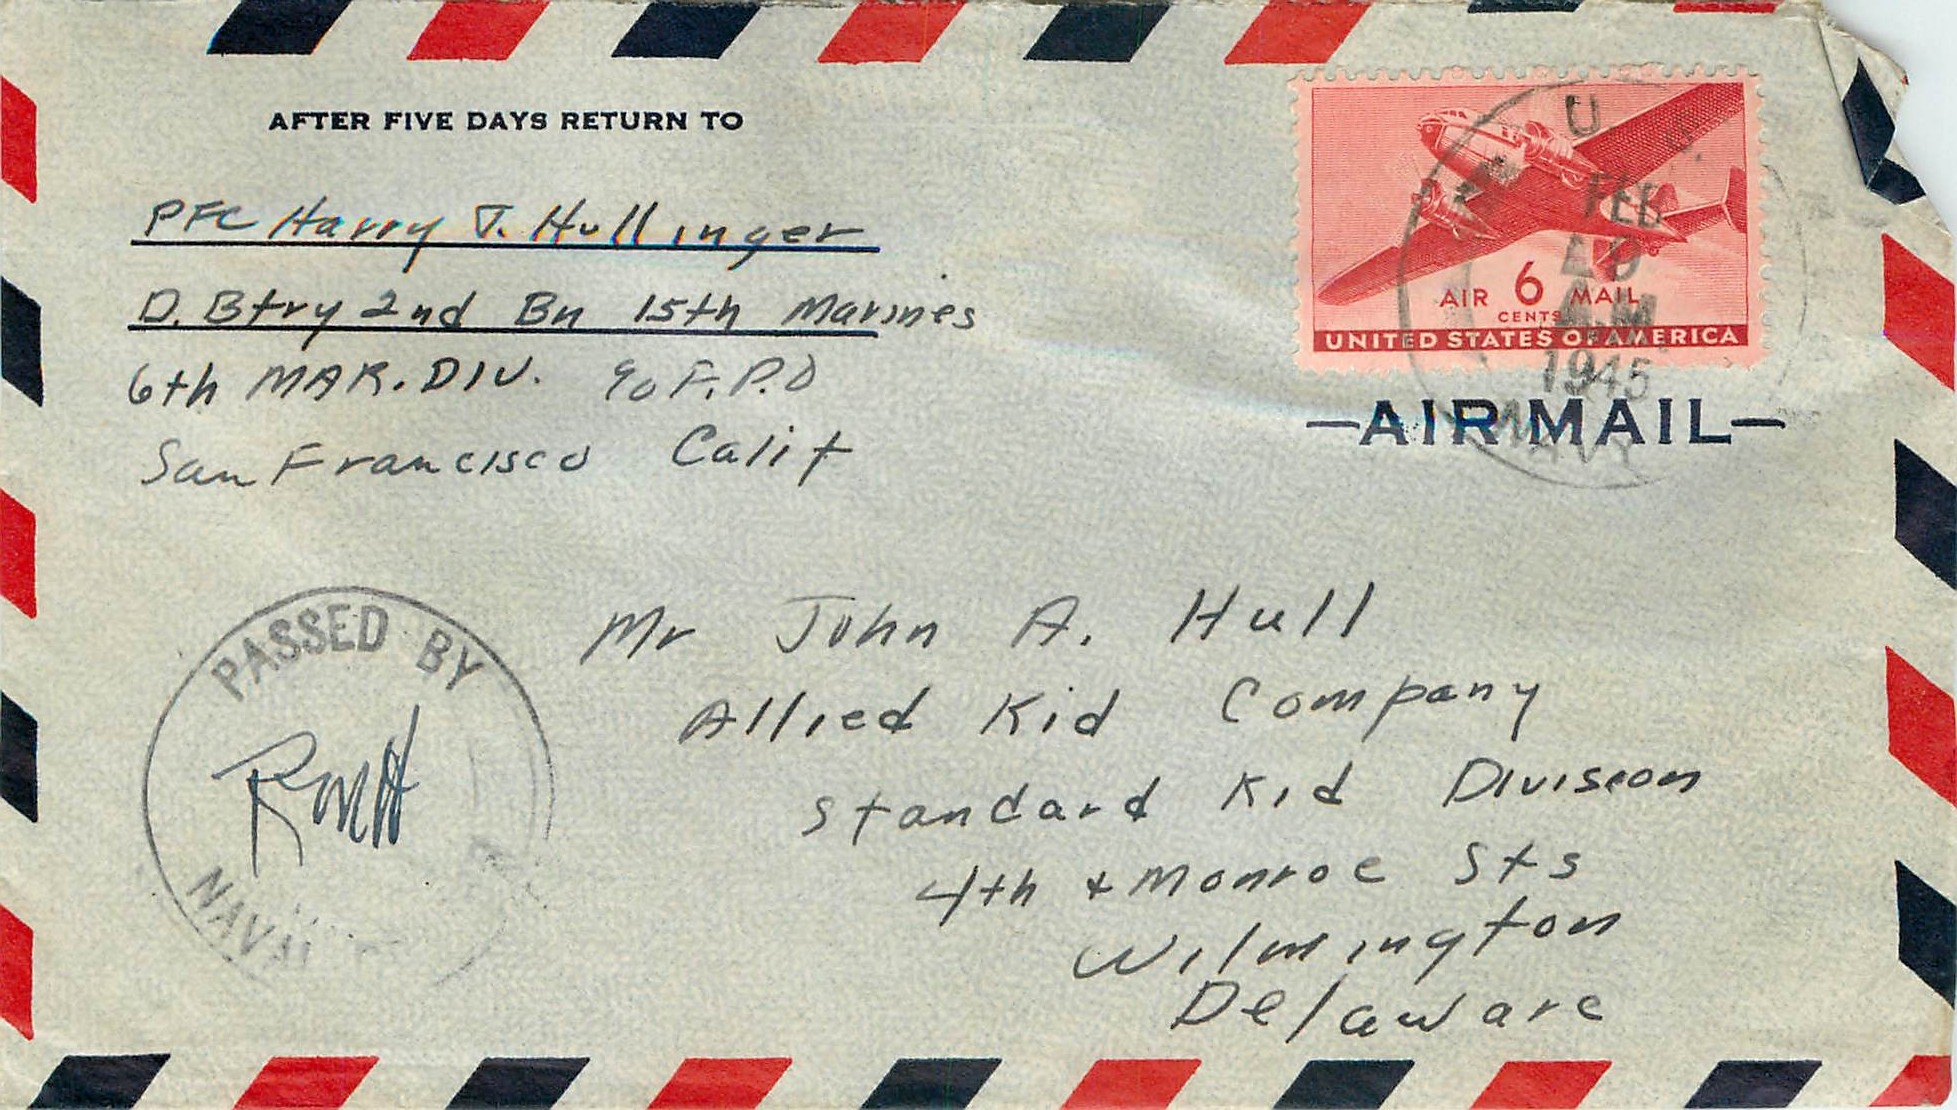 AFTER FIVE DAYS RETURN TO
PFC Harry T. Hullinger
D. Btry 2nd Bn 15th Marines
6th MAR. DIV. c/o F.P.O
San Francisco Calif
U. S.
FEB
A.M.
1945
NAVY
AIR 6 MAIL
CENTS
UNITED STATES OF AMERICA
—AIR MAIL—
PASSED BY
NAVAL
Mr John A. Hull
Allied Kid Company
Standard Kid Division
4th & Monroe Sts
Wilmington
Delaware